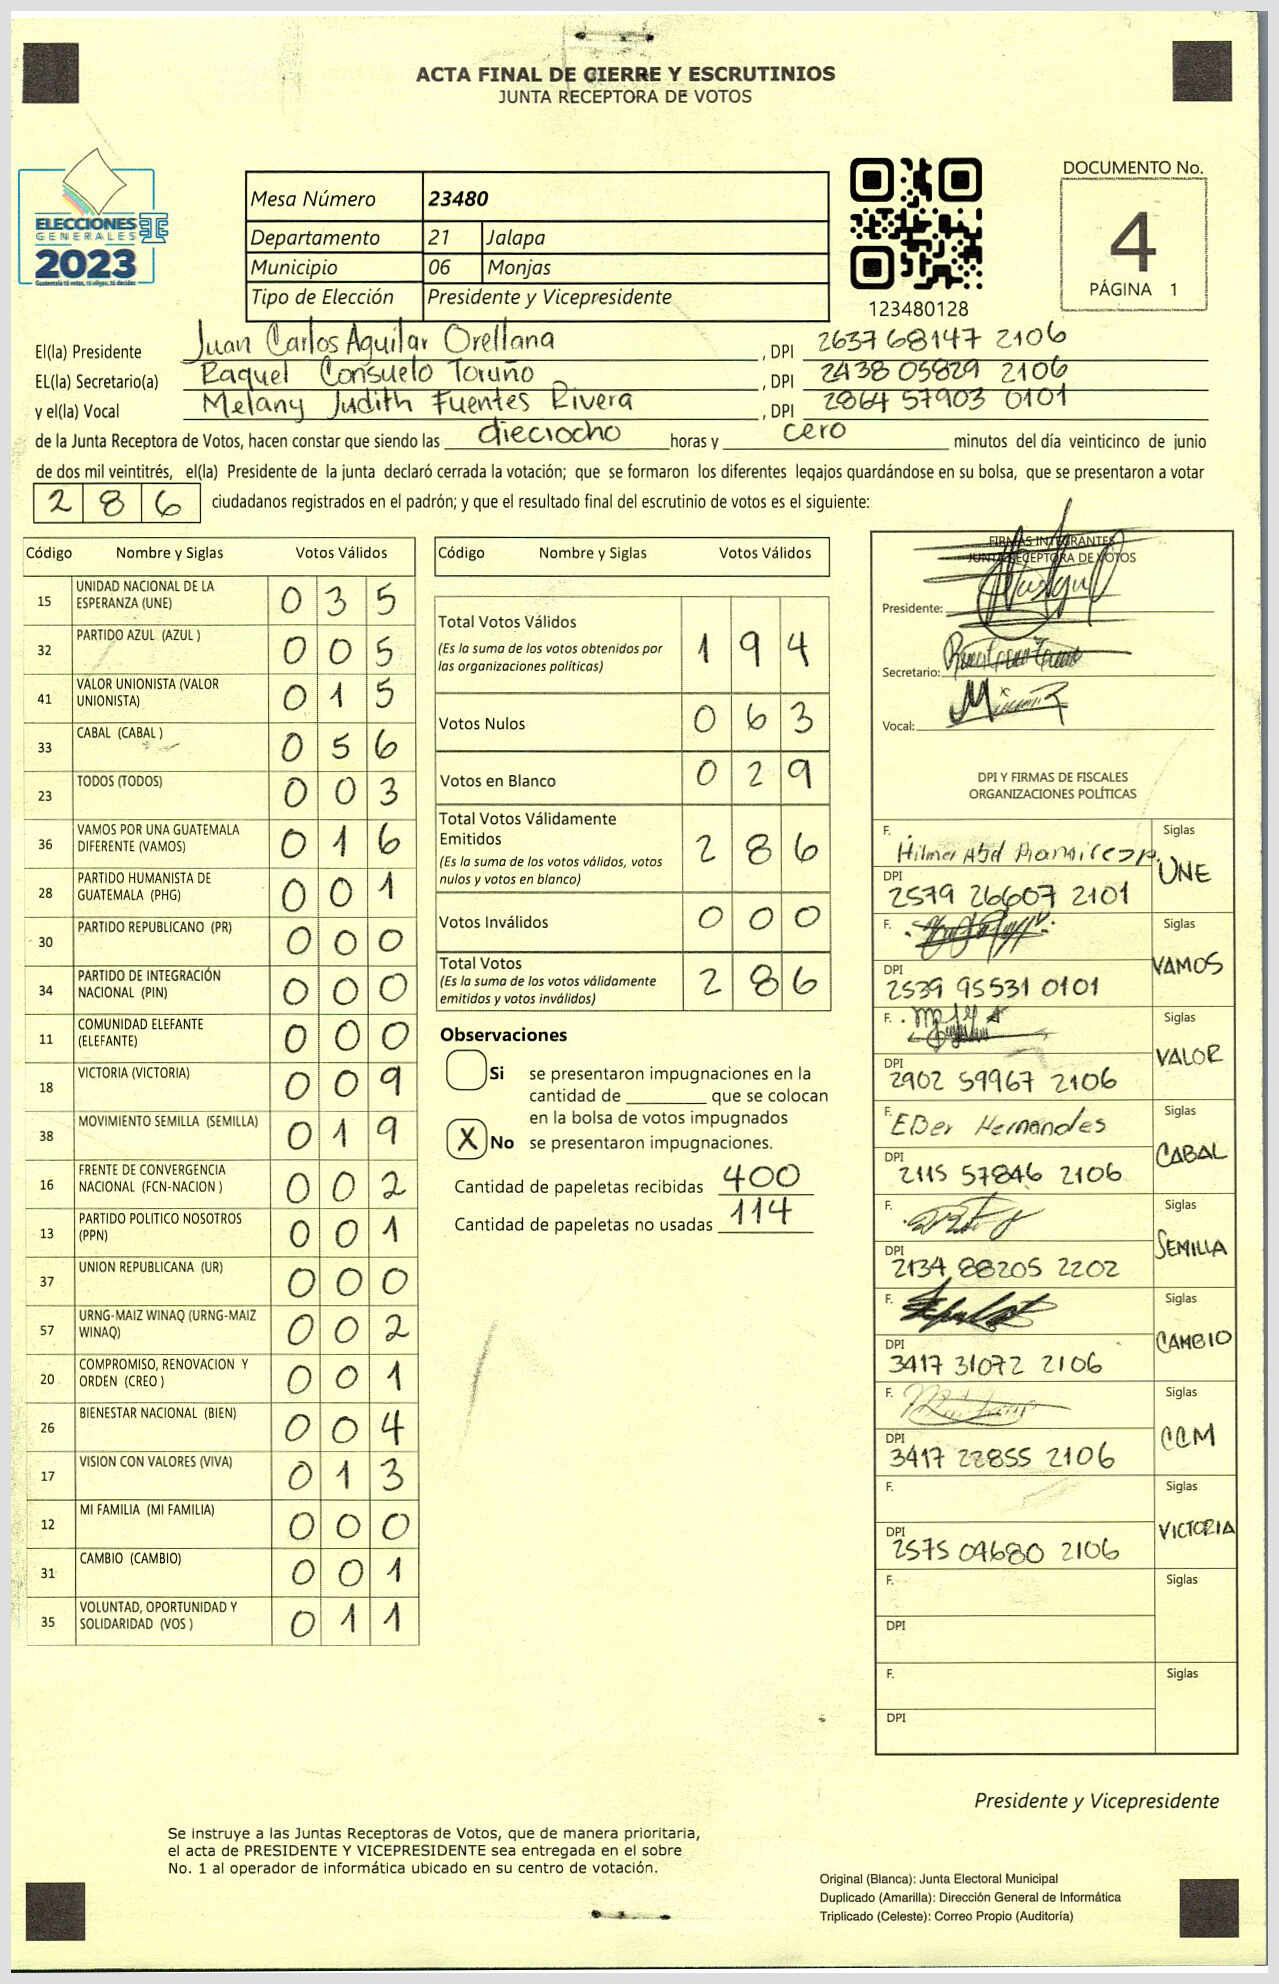 ACTA FINAL DE CIERRE Y ESCRUTINIOS
JUNTA RECEPTORA DE VOTOS
ELECCIONES
GENERALES
2023
Guatemala tú votas, tú eliges, tú decides
Mesa Número 23480
Departamento 21 Jalapa
Municipio 06 Monjas
Tipo de Elección Presidente y Vicepresidente
123480128
DOCUMENTO No.
4
PÁGINA 1
El(la) Presidente Juan Carlos Aguilar Orellana , DPI 2637 68147 2106
EL(la) Secretario(a) Raquel Consuelo Toruño , DPI 2438 05829 2106
y el(la) Vocal Melany Judith Fuentes Rivera , DPI 2864 57903 0101
de la Junta Receptora de Votos, hacen constar que siendo las dieciocho horas y cero minutos del día veinticinco de junio
de dos mil veintitrés, el(la) Presidente de la junta declaró cerrada la votación; que se formaron los diferentes legajos guardándose en su bolsa, que se presentaron a votar
286 ciudadanos registrados en el padrón; y que el resultado final del escrutinio de votos es el siguiente:
Código Nombre y Siglas Votos Válidos
15 UNIDAD NACIONAL DE LA
ESPERANZA (UNE) 0 3 5
32 PARTIDO AZUL (AZUL ) 0 0 5
41 VALOR UNIONISTA (VALOR
UNIONISTA) 0 1 5
33 CABAL (CABAL ) 0 5 6
23 TODOS (TODOS) 0 0 3
36 VAMOS POR UNA GUATEMALA
DIFERENTE (VAMOS) 0 1 6
28 PARTIDO HUMANISTA DE
GUATEMALA (PHG) 0 0 1
30 PARTIDO REPUBLICANO (PR) 0 0 0
34 PARTIDO DE INTEGRACIÓN
NACIONAL (PIN) 0 0 0
11 COMUNIDAD ELEFANTE
(ELEFANTE) 0 0 0
18 VICTORIA (VICTORIA) 0 0 9
38 MOVIMIENTO SEMILLA (SEMILLA) 0 1 9
16 FRENTE DE CONVERGENCIA
NACIONAL (FCN-NACION ) 0 0 2
13 PARTIDO POLITICO NOSOTROS
(PPN) 0 0 1
37 UNION REPUBLICANA (UR) 0 0 0
57 URNG-MAIZ WINAQ (URNG-MAIZ
WINAQ) 0 0 2
20 COMPROMISO, RENOVACION Y
ORDEN (CREO ) 0 0 1
26 BIENESTAR NACIONAL (BIEN) 0 0 4
17 VISION CON VALORES (VIVA) 0 1 3
12 MI FAMILIA (MI FAMILIA) 0 0 0
31 CAMBIO (CAMBIO) 0 0 1
35 VOLUNTAD, OPORTUNIDAD Y
SOLIDARIDAD (VOS ) 0 1 1
Código Nombre y Siglas Votos Válidos
Total Votos Válidos
(Es la suma de los votos obtenidos por
las organizaciones políticas) 1 9 4
Votos Nulos 0 6 3
Votos en Blanco 0 2 9
Total Votos Válidamente
Emitidos
(Es la suma de los votos válidos, votos
nulos y votos en blanco) 2 8 6
Votos Inválidos 0 0 0
Total Votos
(Es la suma de los votos válidamente
emitidos y votos inválidos) 2 8 6
Observaciones
Si se presentaron impugnaciones en la
cantidad de ________ que se colocan
en la bolsa de votos impugnados
X No se presentaron impugnaciones.
Cantidad de papeletas recibidas 400
Cantidad de papeletas no usadas 114
FIRMAS INTEGRANTES
JUNTA RECEPTORA DE VOTOS
Presidente:
Secretario:
Vocal:
DPI Y FIRMAS DE FISCALES
ORGANIZACIONES POLÍTICAS
F. Siglas
DPI 2579 26607 2101 UNE
F. Siglas
DPI 2539 95531 0101 VAMOS
F. Siglas
DPI 2902 59967 2106 VALOR
F. EBer Hernandes Siglas
DPI 2115 57846 2106 CABAL
F. Siglas
DPI 2134 88205 2202 SEMILLA
F. Siglas
DPI 3417 31072 2106 CAMBIO
F. Siglas
DPI 3417 22855 2106 CCM
F. Siglas
DPI 2575 04680 2106 VICTORIA
F. Siglas
DPI
F. Siglas
DPI
Presidente y Vicepresidente
Se instruye a las Juntas Receptoras de Votos, que de manera prioritaria,
el acta de PRESIDENTE Y VICEPRESIDENTE sea entregada en el sobre
No. 1 al operador de informática ubicado en su centro de votación.
Original (Blanca): Junta Electoral Municipal
Duplicado (Amarilla): Dirección General de Informática
Triplicado (Celeste): Correo Propio (Auditoría)